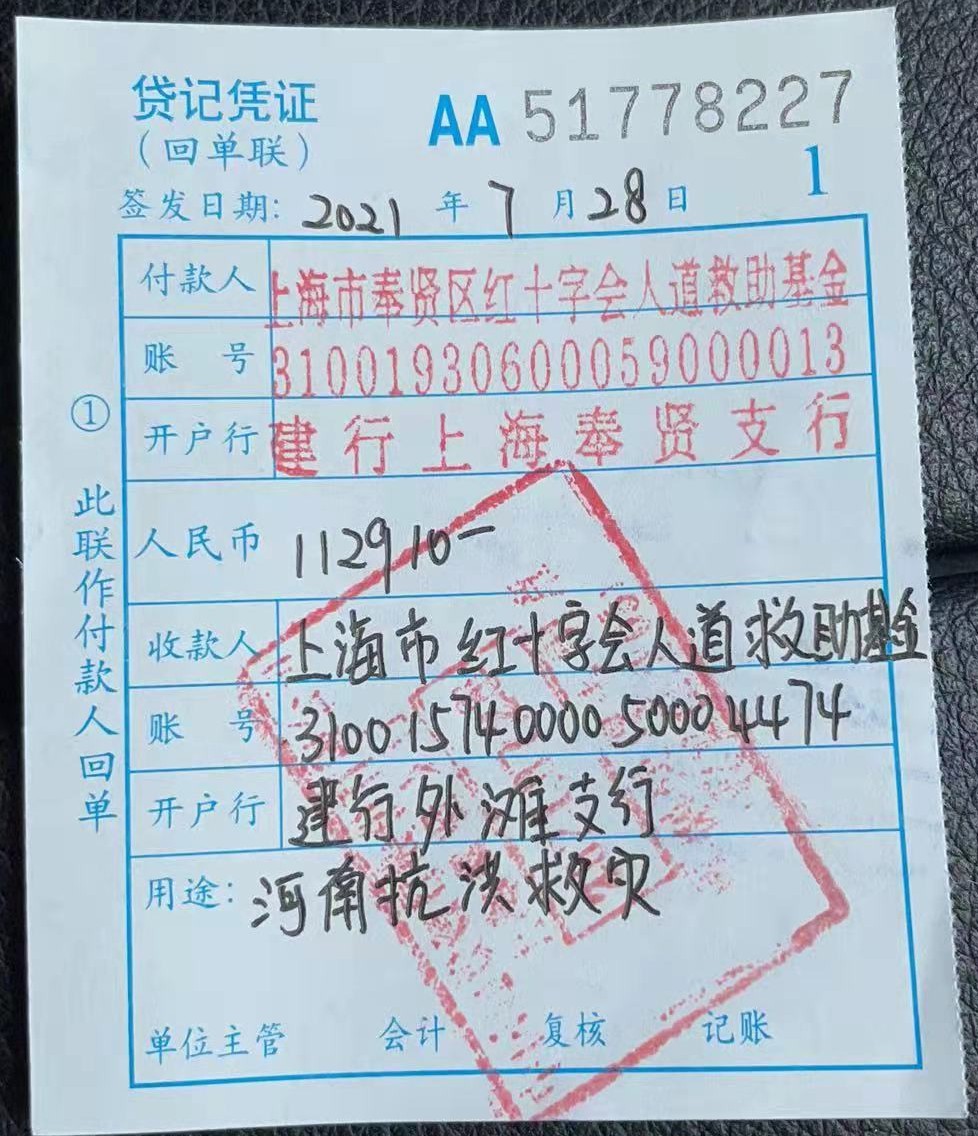 贷记凭证
AA 51778227
（回单联）
1
签发日期: 2021 年 7 月 28 日
付款人 上海市奉贤区红十字会人道救助基金
账 号 31001930600059000013
开户行 建行上海奉贤支行
人民币 112910-
收款人 上海市红十字会人道救助基金
账 号 31001574000050004474
开户行 建行外滩支行
用途: 河南抗洪救灾
单位主管 会计 复核 记账
① 此联作付款人回单